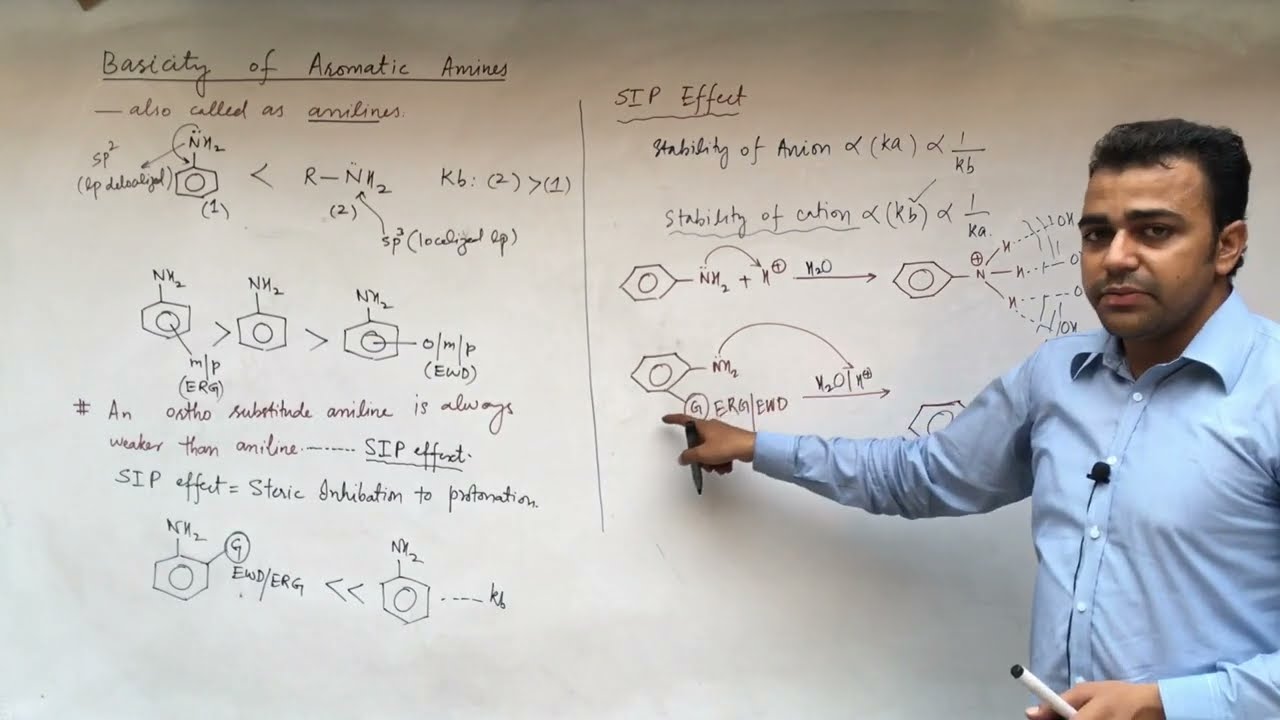 Basicity of Aromatic Amines
— also called as anilines.
sp²
(lp delocalized)
N̈H₂
(1)
<
R—N̈H₂
(2)
Kb: (2) > (1)
sp³ (localized lp)
NH₂
m/p
(ERG)
>
NH₂
>
NH₂
o/m/p
(EWD)
# An ortho substitude aniline is always
weaker than aniline ------ SIP effect.
SIP effect = Steric Inhibation to protonation.
NH₂
G
EWD/ERG
<<
NH₂
---- kb
SIP Effect
Stability of Anion ∝ (ka) ∝ 1/kb
Stability of cation ∝ (kb) ∝ 1/ka
N̈H₂ + H⊕
H₂O
⊕
N
H
H
H
OH
O
O
OH
N̈H₂
G ERG/EWD
H₂O/H⊕